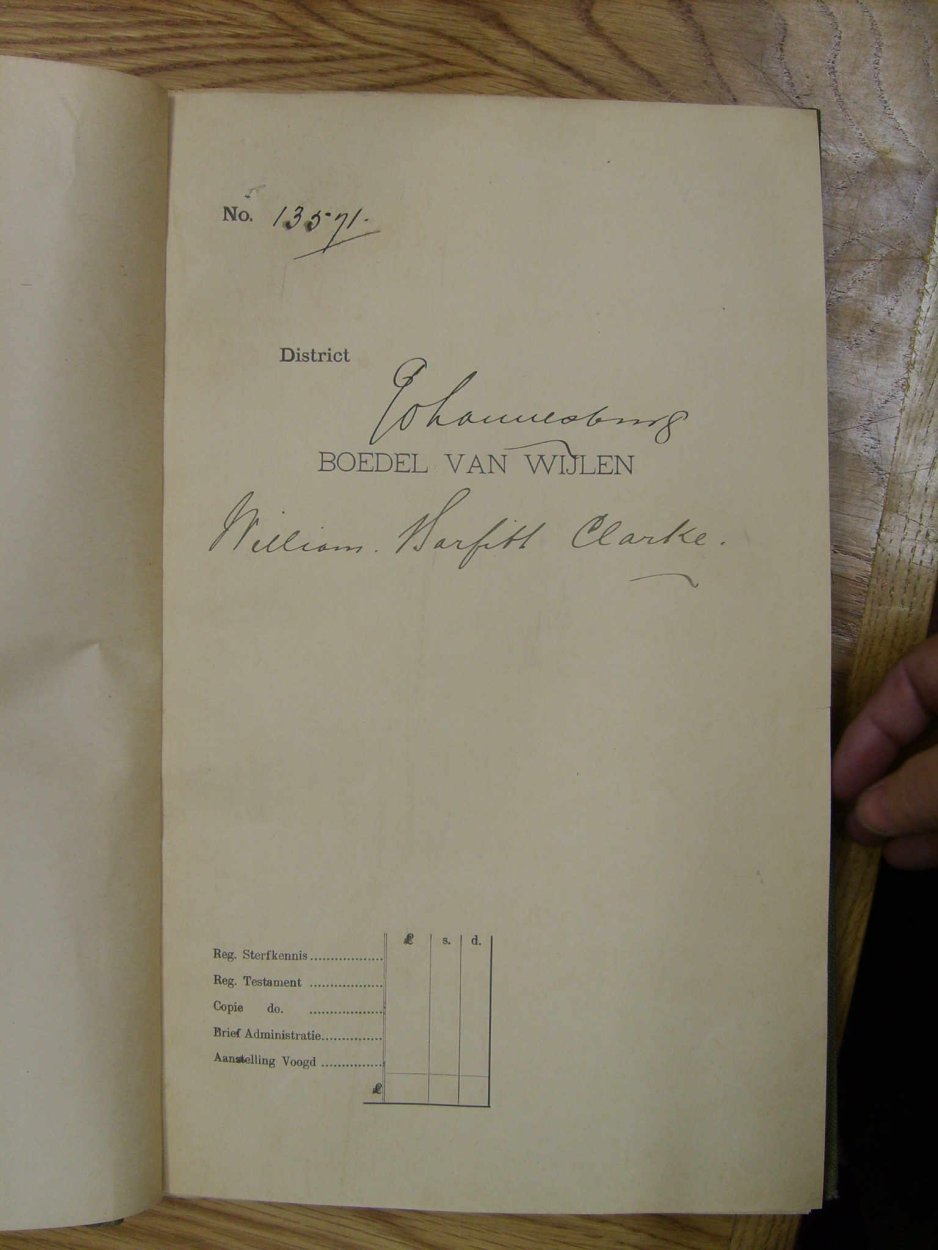 No. 13571.
District
Johannesburg
BOEDEL VAN WIJLEN
William. Barfitt Clarke.
£ s. d.
Reg. Sterfkennis
Reg. Testament
Copie do.
Brief Administratie
Aanstelling Voogd
£